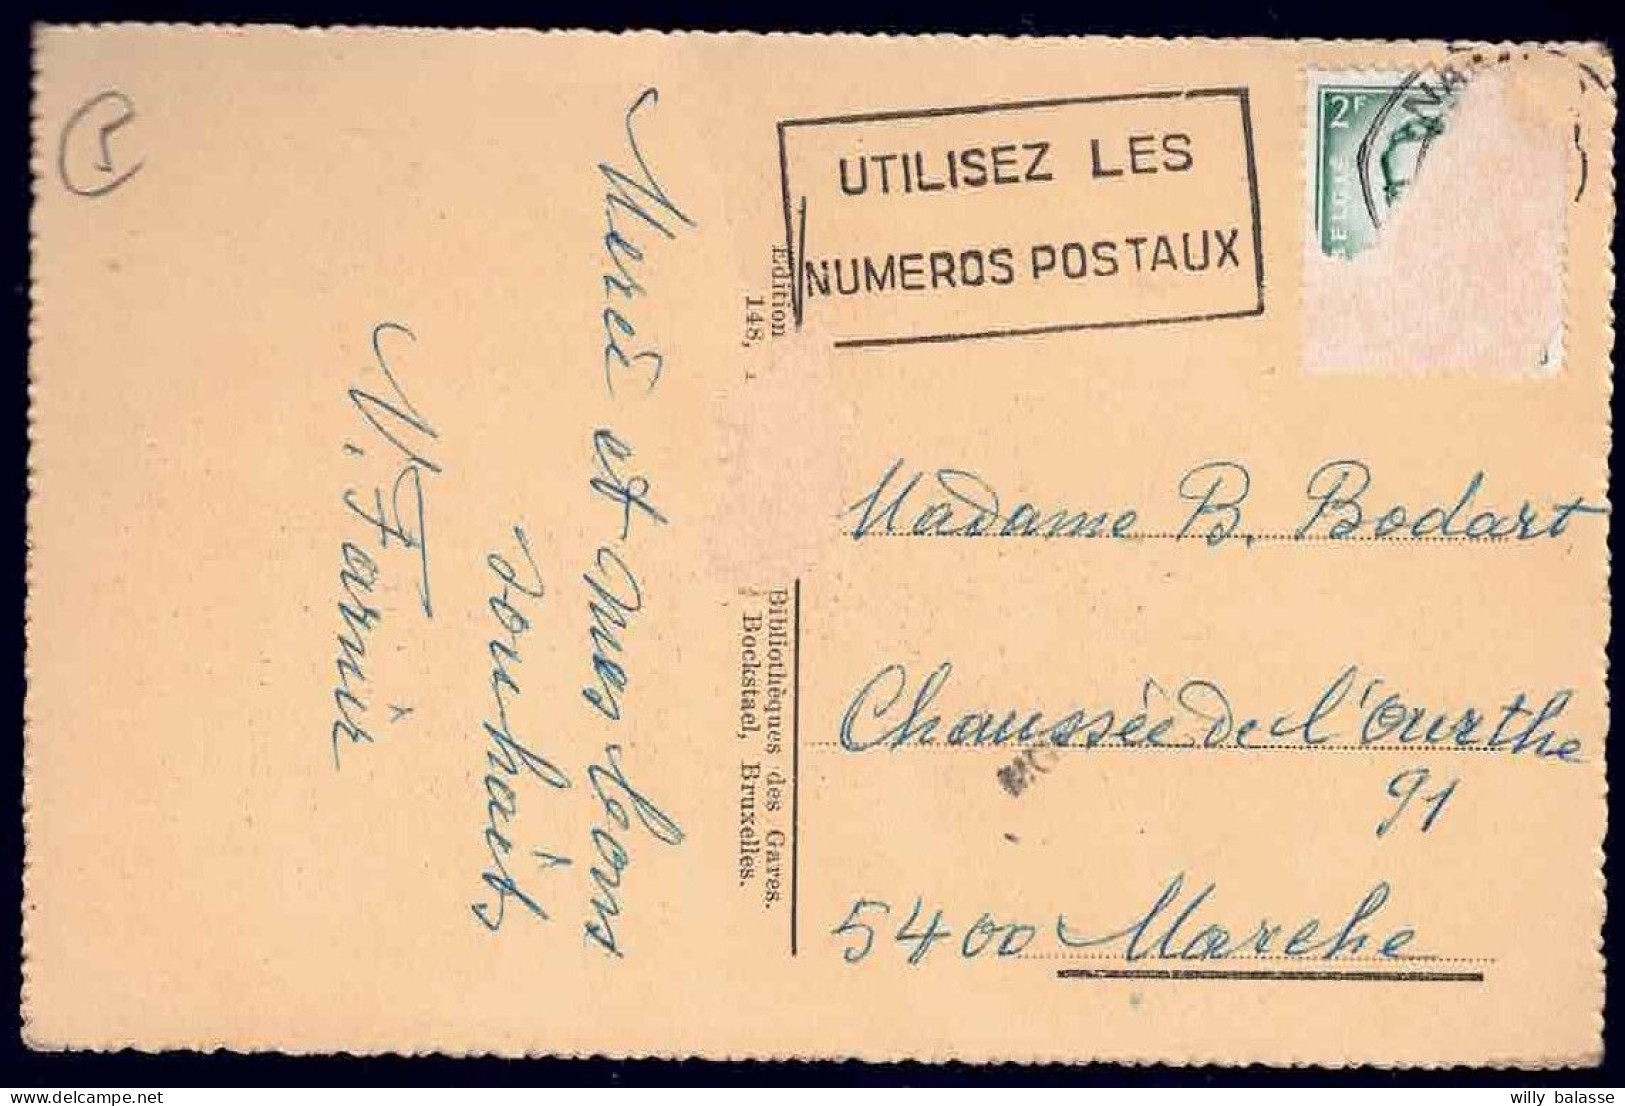 5
Merci et mes bons
souhaits
N. Farnir
Edition Bibliothèques des Gares.
148, Bockstael, Bruxelles.
UTILISEZ LES
NUMEROS POSTAUX
2F
BELGIE
NA
Madame B. Bodart
Chaussée de l'Ourthe
91
5400 Marche
willy balasse